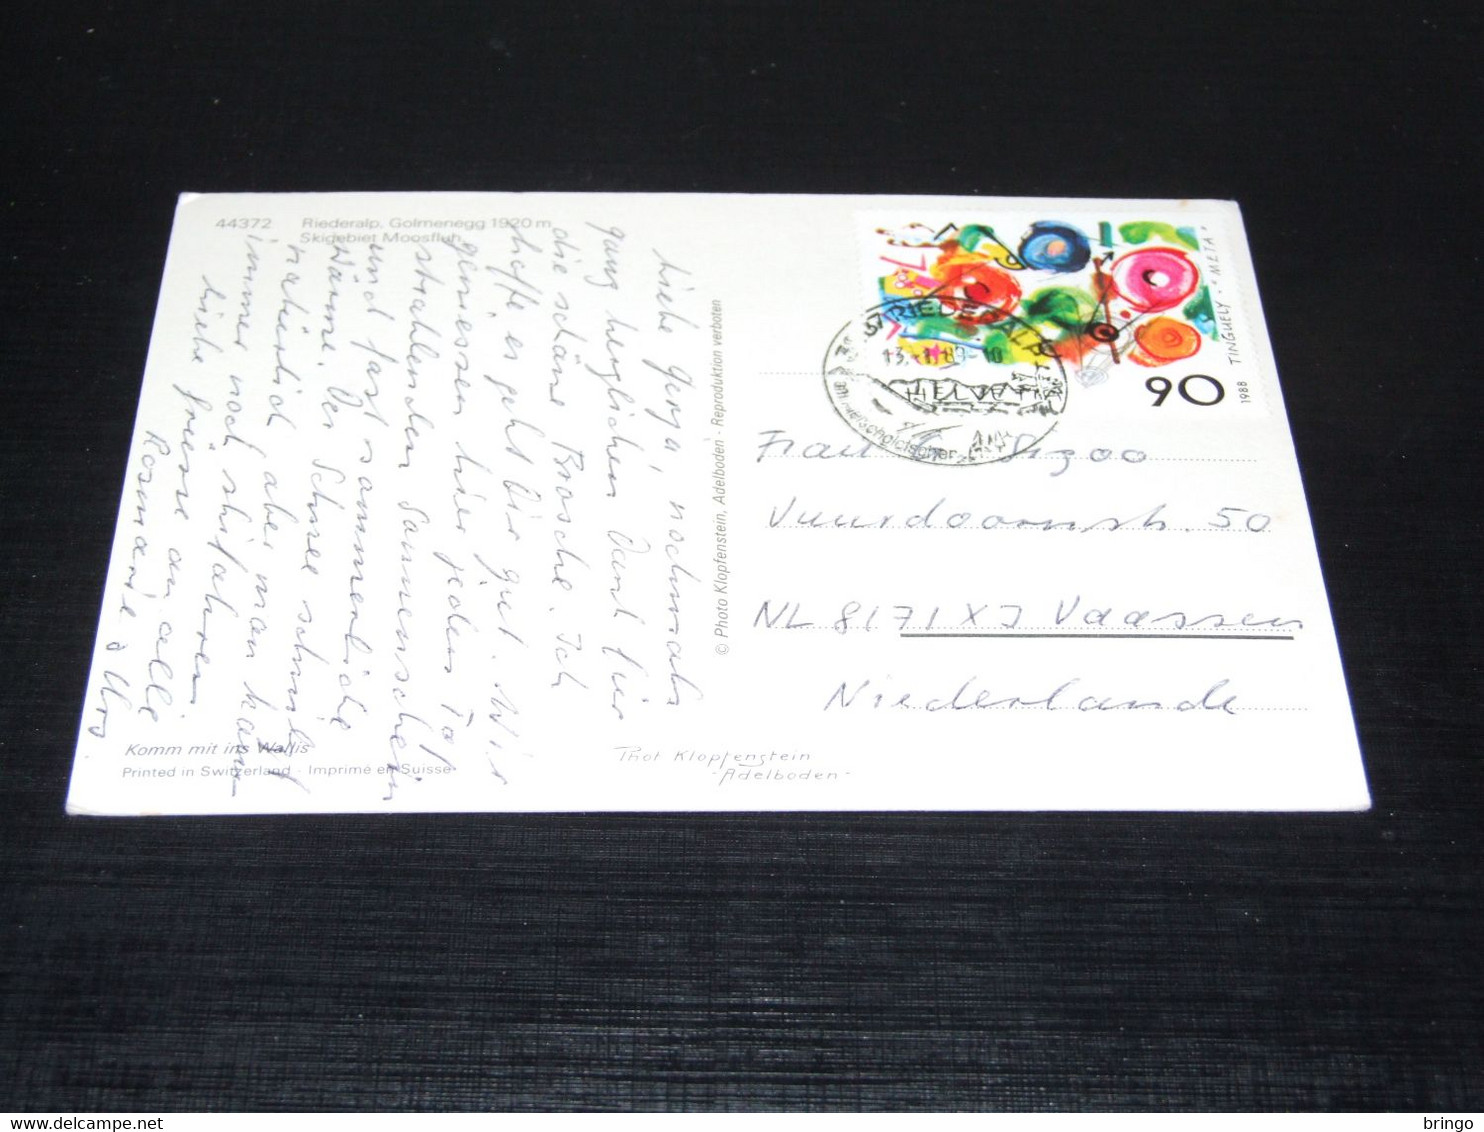 44372 Riederalp, Golmenegg 1920 m
Skigebiet Moosfluh
Liebe Gerga, nochmals
ganz herzlichen Dank für
die schöne Brosche. Ich
hoffe, es geht Dir gut. Wir
geniessen hier jeden Tag
strahlenden Sonnenschein
und fast sommerliche
Wärme. Der Schnee schmilzt
natürlich aber man kann
immer noch skifahren
Liebe Grüsse an alle
Rosmarie & Urs
Komm mit ins Wallis
Printed in Switzerland - Imprimé en Suisse
© Photo Klopfenstein, Adelboden - Reproduktion verboten
Phot Klopfenstein
- Adelboden -
TINGUELY · "META"
1988
90
RIEDERALP
13.-1.89-10
HELVETIA
am Aletschgletscher
Frau Dizoo
Vuurdoornstr. 50
NL 8171 XJ Vaassen
Niederlande
bringo